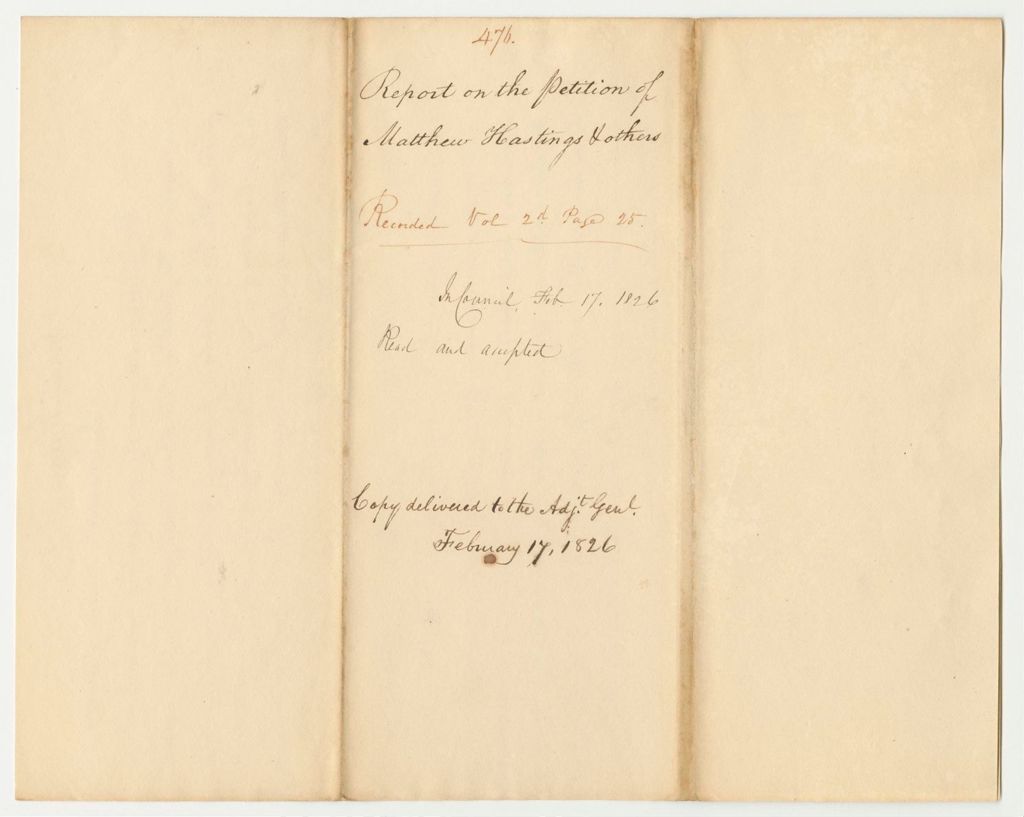 476.
Report on the Petition of
Matthew Hastings & others
Recorded Vol 2d Page 25.
In Council, Feb. 17. 1826
Read and accepted
Copy delivered to the Adjt. Genl.
February 17, 1826